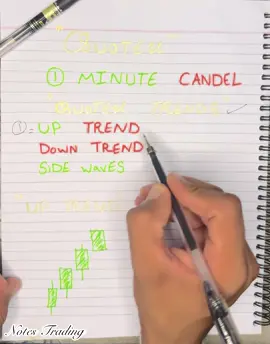 "Quotex"
① MINUTE CANDEL
①= UP TREND
DOWN TREND
SIDE WAVES
"UP
Notes Trading